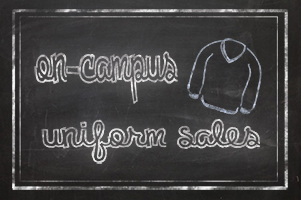 on-campus
uniform sales